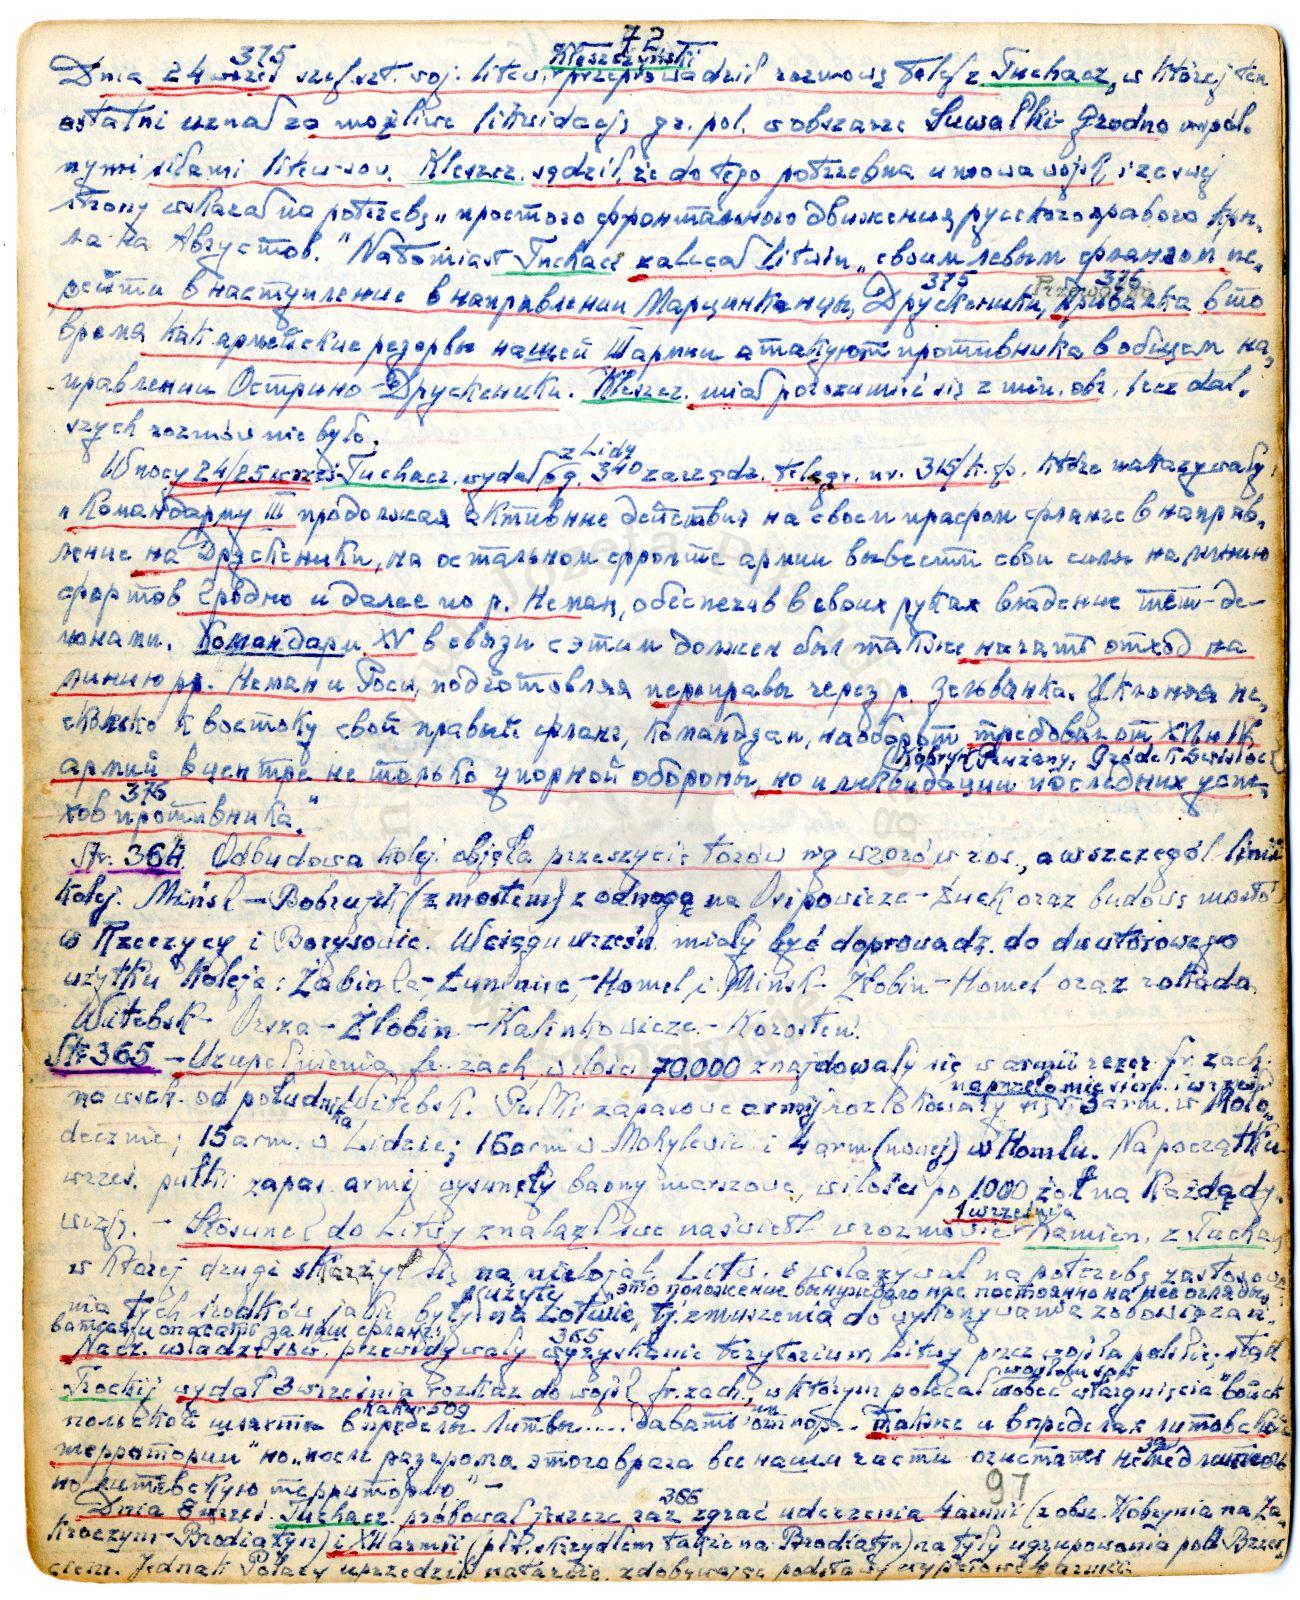 72
375 Kleszczyński
Dnia 24 wrześ szef szt. woj. litew. przeprowadził rozmowę telef z Tuchacz, w której ten
ostatni uznał za możliwe likwidację gr. pol. w obszarze Suwałki Grodno wspól-
nymi siłami litew-sow. Kleszcz. sądził, że do tego potrzebna umowa wojsk, i ze swej
strony wskazał na potrzebę „простого фронтального движения русского правого кры-
ла на Августов." Natomiast Tuchacz zalecał Litwin „своим левым флангом пе-
375 376
рейти в наступление в направлении Марцинканцы, Друскеники, , в то
время как армейские резервы нашей III армии атакуют противника в общем на-
правлении Острино-Друскеники. Kleszcz. miał porozumieć się z min. obr, lecz dal-
szych rozmów nie było.
z Lidy
W nocy 24/25 wrześ Tuchacz. wydał og. 340 zarządz. telegr. nr. 315/k.f. które nakazywały
„Командарму III продолжая активные действия на своем правом фланге в направ-
ление на Друскеники, на остальном фронте армии вывести свои силы на линию
фортов Гродно и далее по р. Неман, обеспечив в своих руках владение тет-де-
понами. Командарм XV в связи с этим должен был также начать отход на
линию рр. Неман и Роси, подготовляя переправы через р. Зельвянка. Уклоняя не-
сколько к востоку свой правый фланг, командзап, наоборот требовал от XVI и IV
(Kobryń, Prużany, Gródek Świsłocz)
армий в центре не только упорной обороны, но и ликвидации последних успе-
376
хов противника."
Str. 364 Odbudowa kolej objęła przeszycie torów wg wzorów ros., a w szczegól linii
kolej. Mińsk – Bobrujsk (z mostem) z odnogą na Osipowicze – Łuck oraz budowę mostów
w Rzeczycy i Borysowie. W ciągu wrześn. miały być doprowadz. do dwutorowego
użytku koleje: Żabinka – Łuniniec – Homel i Mińsk – Żłobin – Homel oraz rokada
Witebsk – Orsza – Żłobin – Kalinkowicze – Korosteń.
Str. 365 – Uzupełnienia fr. zach, w ilości 70.000 znajdowały się w armii rezer fr. zach
na przełomie sierp. i wrześ
na wsch. od połud Witebsk. Pułki zapasowe armij rozlokowały się: 3 arm. w Moło-
decznie; 15 arm. w Lidzie; 16 arm w Mohylewie i 4 arm (nowej) w Homlu. Na początku
wrześ. pułki zapas. armij wysunęły baony marszowe, w ilości po 1.000 żoł na każdą dy-
1 września
wizję. – Stosunek do Litwy znalazł swe naświetl w rozmowie Kamien. z Tuchacz
w której drugi skarżył się na nielojal. Litw. i wskazywał na potrzebę zastosowa-
użyte „это положение вынуждало нас постоянно на нее огляды-
nia tych środków jakie były na Łotwie, tj. zmuszenia do wykonywania zobowiązań.
ваться и опасаться за наш фланг"
365
Nacz. władze sow. przewidywały wyzyskanie terytorium Litwy przez wojska polskie, stąd
Trockij wydał 3 września rozkaz do wojsk fr. zach., w którym polecał wobec wtargnięcia "войск
польской шляхты в пределы Литвы.... давать им отпор.. также и в пределах литовской
территории" но „после разгрома этого врага все наши части очистят немедлитель-
но литовскую территорию" –
97
366
Dnia 8 wrześ. Tuchacz. próbował jeszcze raz zgrać uderzenia 4 armii (z obsz. Kobrynia na Za-
kroczym – Brodiatyn) i XII armii (pół. skrzydłem także na Brodiatyn) na tyły ugrupowania pol. Brzes-
ciem. Jednak Polacy uprzedzili natarcie, zdobywając podstawy wypadowe 4 armii.